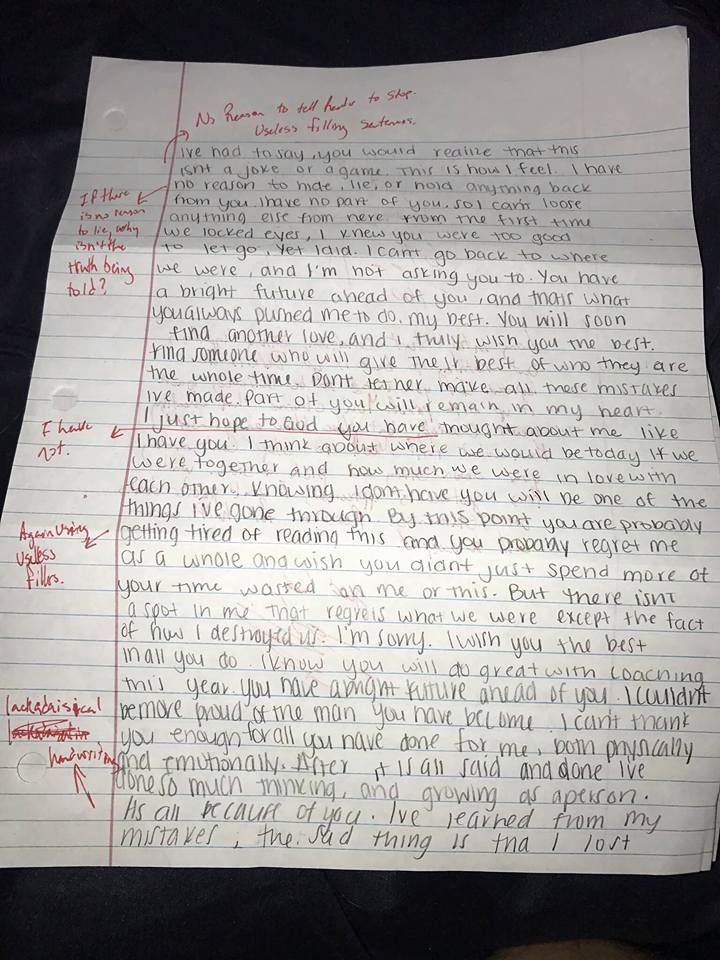 No Reason to tell Reader to stop.
Useless filling sentences.
ive had to say, you would realize that this
isnt a joke or a game. This is how I feel. I have
no reason to hide, lie, or hold anything back
from you. I have no part of you, so I cant loose
anything else from here. From the first time
we locked eyes, I knew you were too good
to let go, yet I did. I cant go back to where
we were, and I'm not asking you to. You have
a bright future ahead of you, and thats what
you always pushed me to do, my best. You will soon
find another love, and I truly wish you the best.
find someone who will give their best of who they are
the whole time. Dont let her make all these mistakes
ive made. Part of you will remain in my heart.
I just hope to God you have thought about me like
I have you. I think about where we would be today if we
were together and how much we were in love with
each other. Knowing I dont have you will be one of the
things I've gone through. By this point you are probably
getting tired of reading this and you probably regret me
as a whole and wish you didnt just spend more of
your time wasted on me or this. But there isnt
a spot in me that regrets what we were except the fact
of how I destroyed us. I'm sorry. I wish you the best
in all you do. I know you will do great with coaching
this year. you have a bright future ahead of you. I couldn't
be more proud of the man you have become. I can't thank
you enough for all you have done for me, both physically
and emotionally. After it is all said and done ive
done so much thinking, and growing as a person.
Its all because of you. I've learned from my
mistakes, the sad thing is tha I lost
If there
is no reason
to lie, why
isn't the
truth being
told?
I have
not.
Again using
useless
fillers.
lackadaisical
handwriting